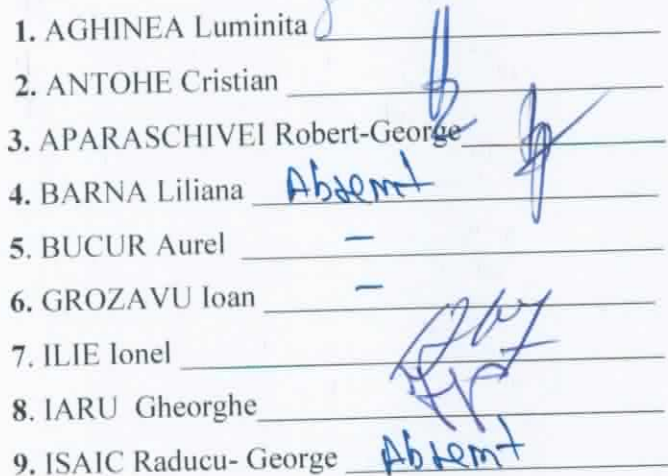 1. AGHINEA Luminita
2. ANTOHE Cristian
3. APARASCHIVEI Robert-George
4. BARNA Liliana Absent
5. BUCUR Aurel –
6. GROZAVU Ioan –
7. ILIE Ionel
8. IARU Gheorghe
9. ISAIC Raducu- George Absent